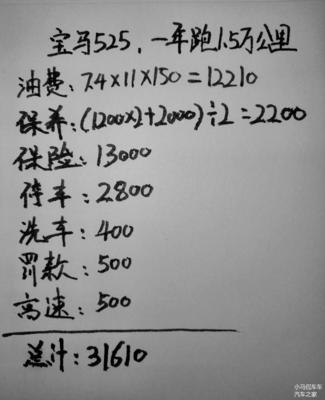 宝马525，一年跑1.5万公里
油费：7.4×11×150=12210
保养：(1200×2+2000)÷2=2200
保险：13000
停车：2800
洗车：400
罚款：500
高速：500
总计：31610
小马侃车车
汽车之家